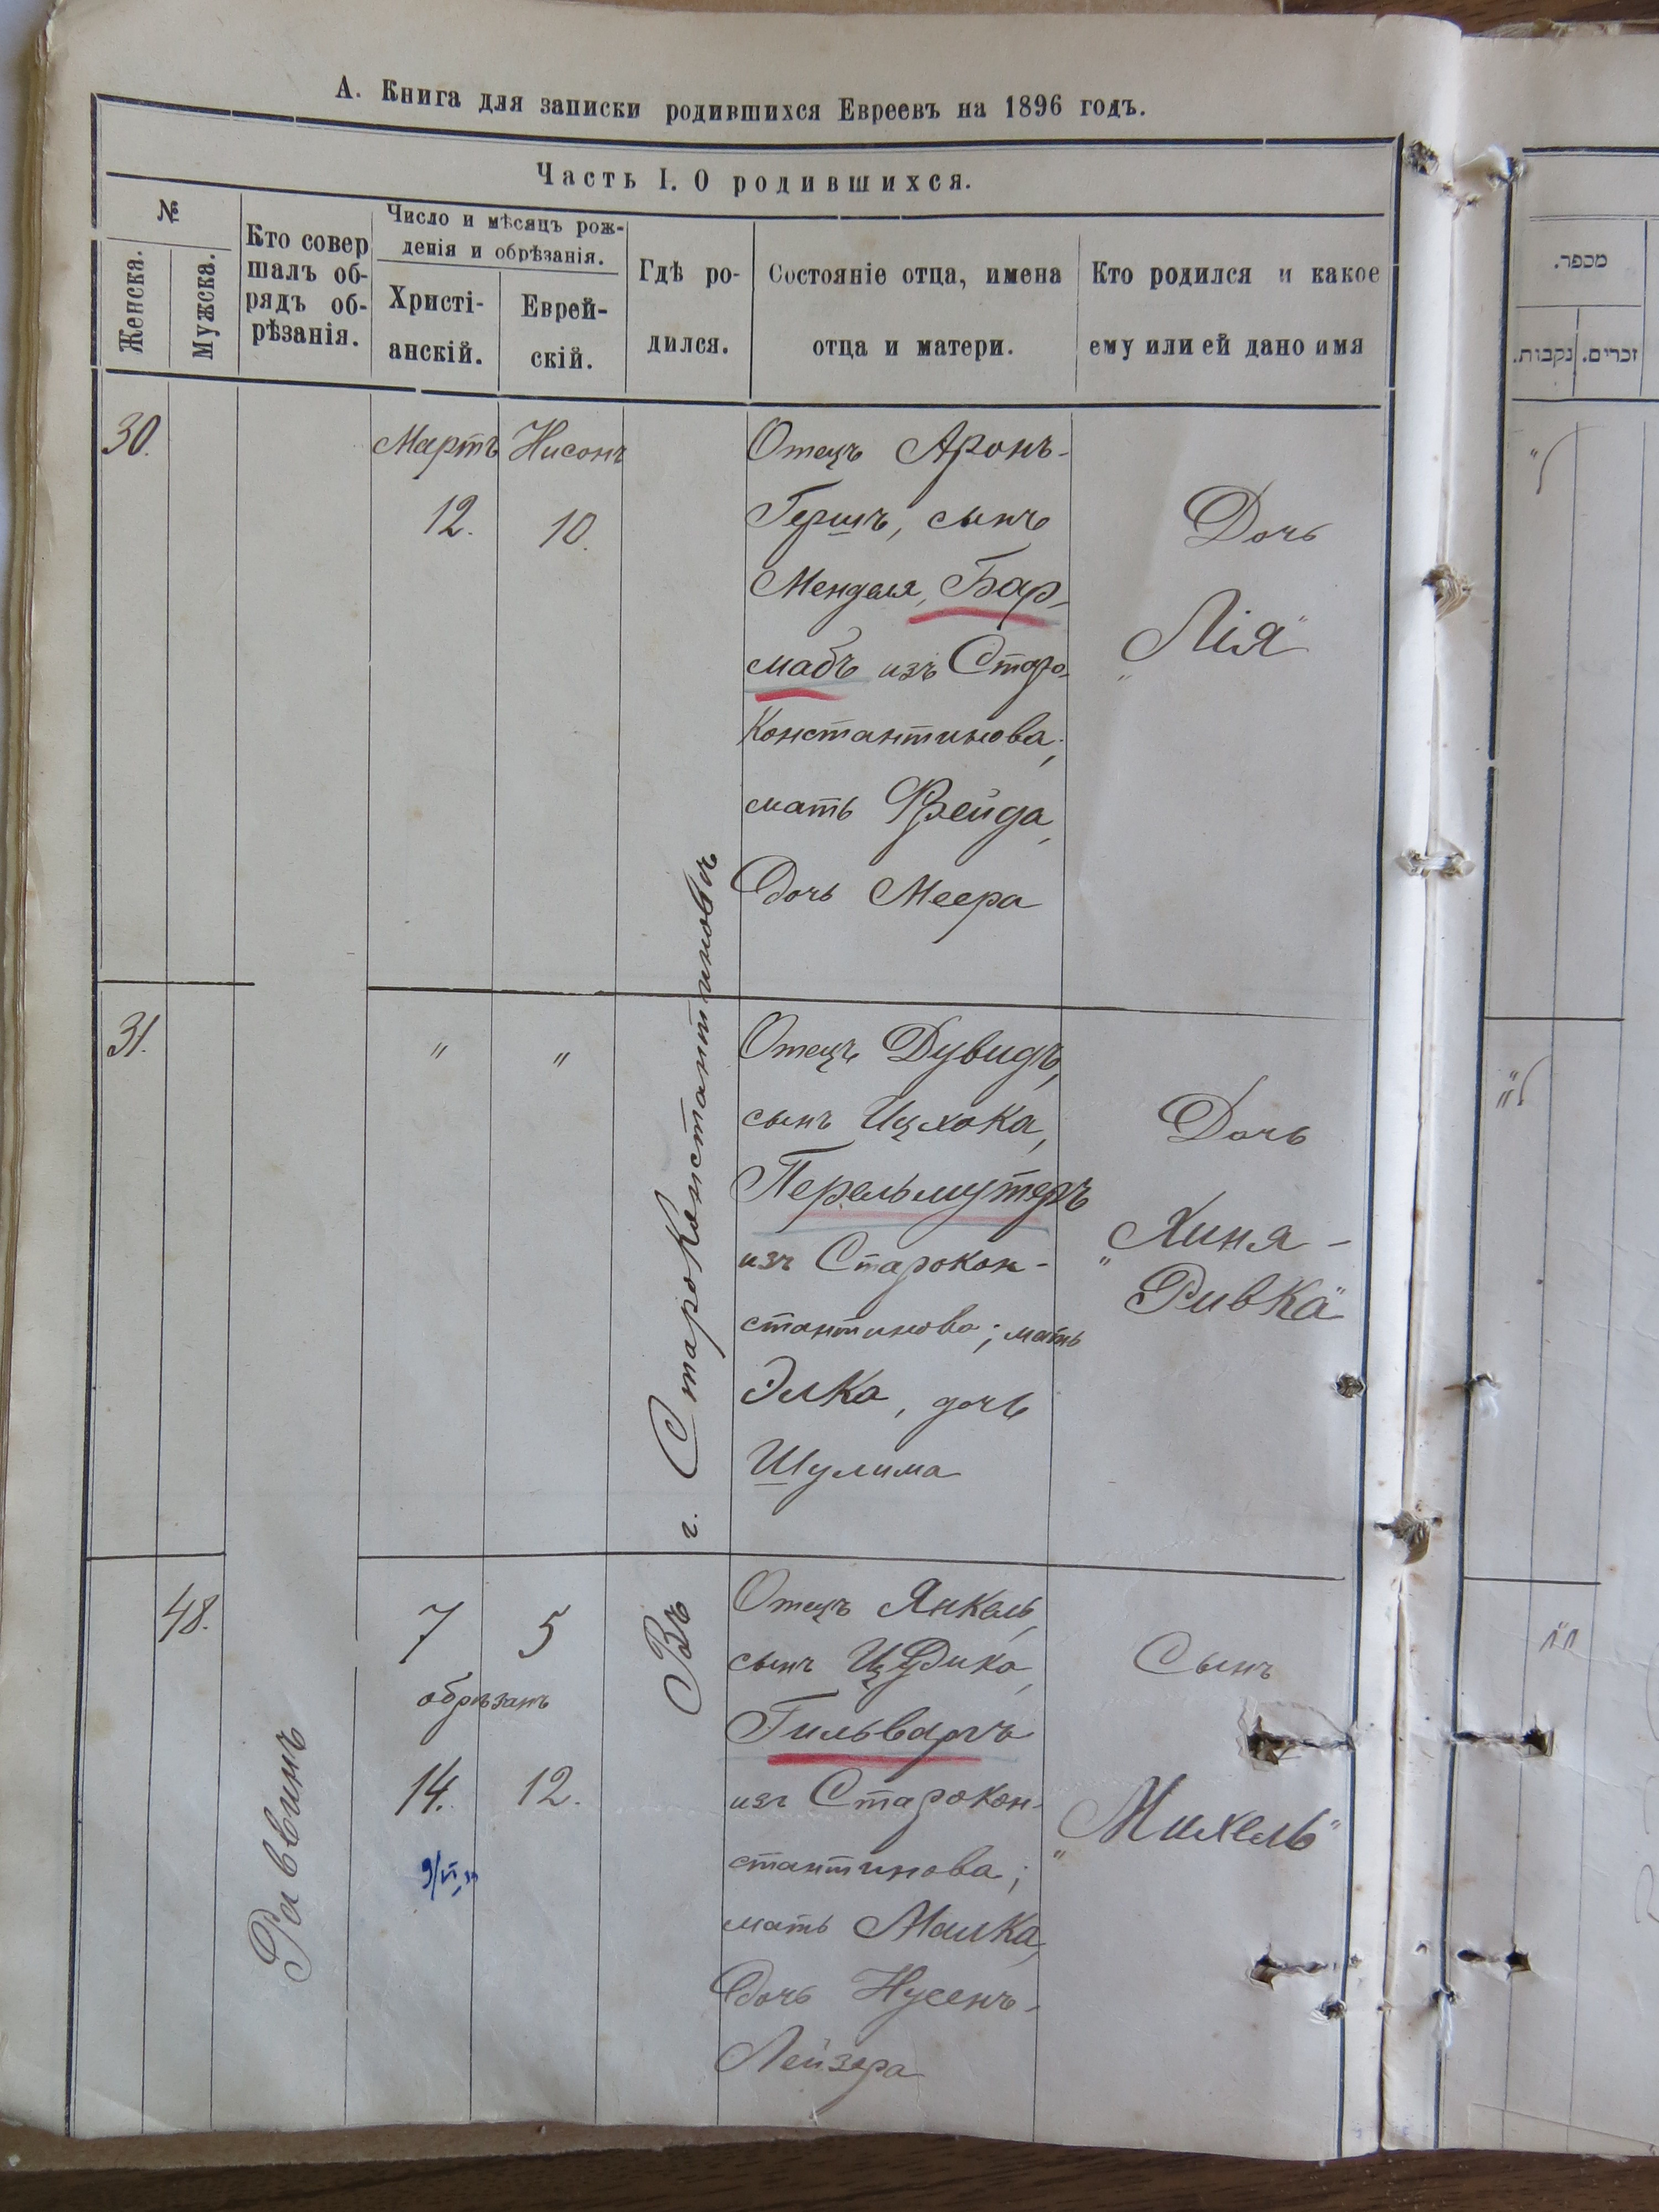 А. Книга для записки родившихся Евреевъ на 1896 годъ.
Часть I. О родившихся.
№
Женска.
Мужска.
Кто совер
шалъ об-
рядъ об-
рѣзанія.
Число и мѣсяцъ рож-
денія и обрѣзанія.
Христі-
анскій.
Еврей-
скій.
Гдѣ ро-
дился.
Состояніе отца, имена
отца и матери.
Кто родился и какое
ему или ей дано имя
30.
Мартъ
12.
Нисонъ
10.
Отецъ Аронъ-
Гершъ, сынъ
Менделя, Бар-
мабъ изъ Старо-
Константинова;
мать Фрейда,
дочь Меера
Дочь
„Лія“
31.
"
"
Отецъ Дувидъ,
сынъ Ицхока,
Перельмутеръ
изъ Старокон-
стантинова; мать
Элка, дочь
Шулима
Дочь
„Хиня-
Ривка“
48.
Раввинъ
7
5
обрѣзанъ
14.
12.
Въ г. Староконстантиновѣ
Отецъ Янкель,
сынъ
Гильваргъ
изъ Старокон-
стантинова;
мать Малка,
дочь Нусенъ-
Лейзера
Сынъ
„Михель“
מספר.
נקבות.
זכרים.